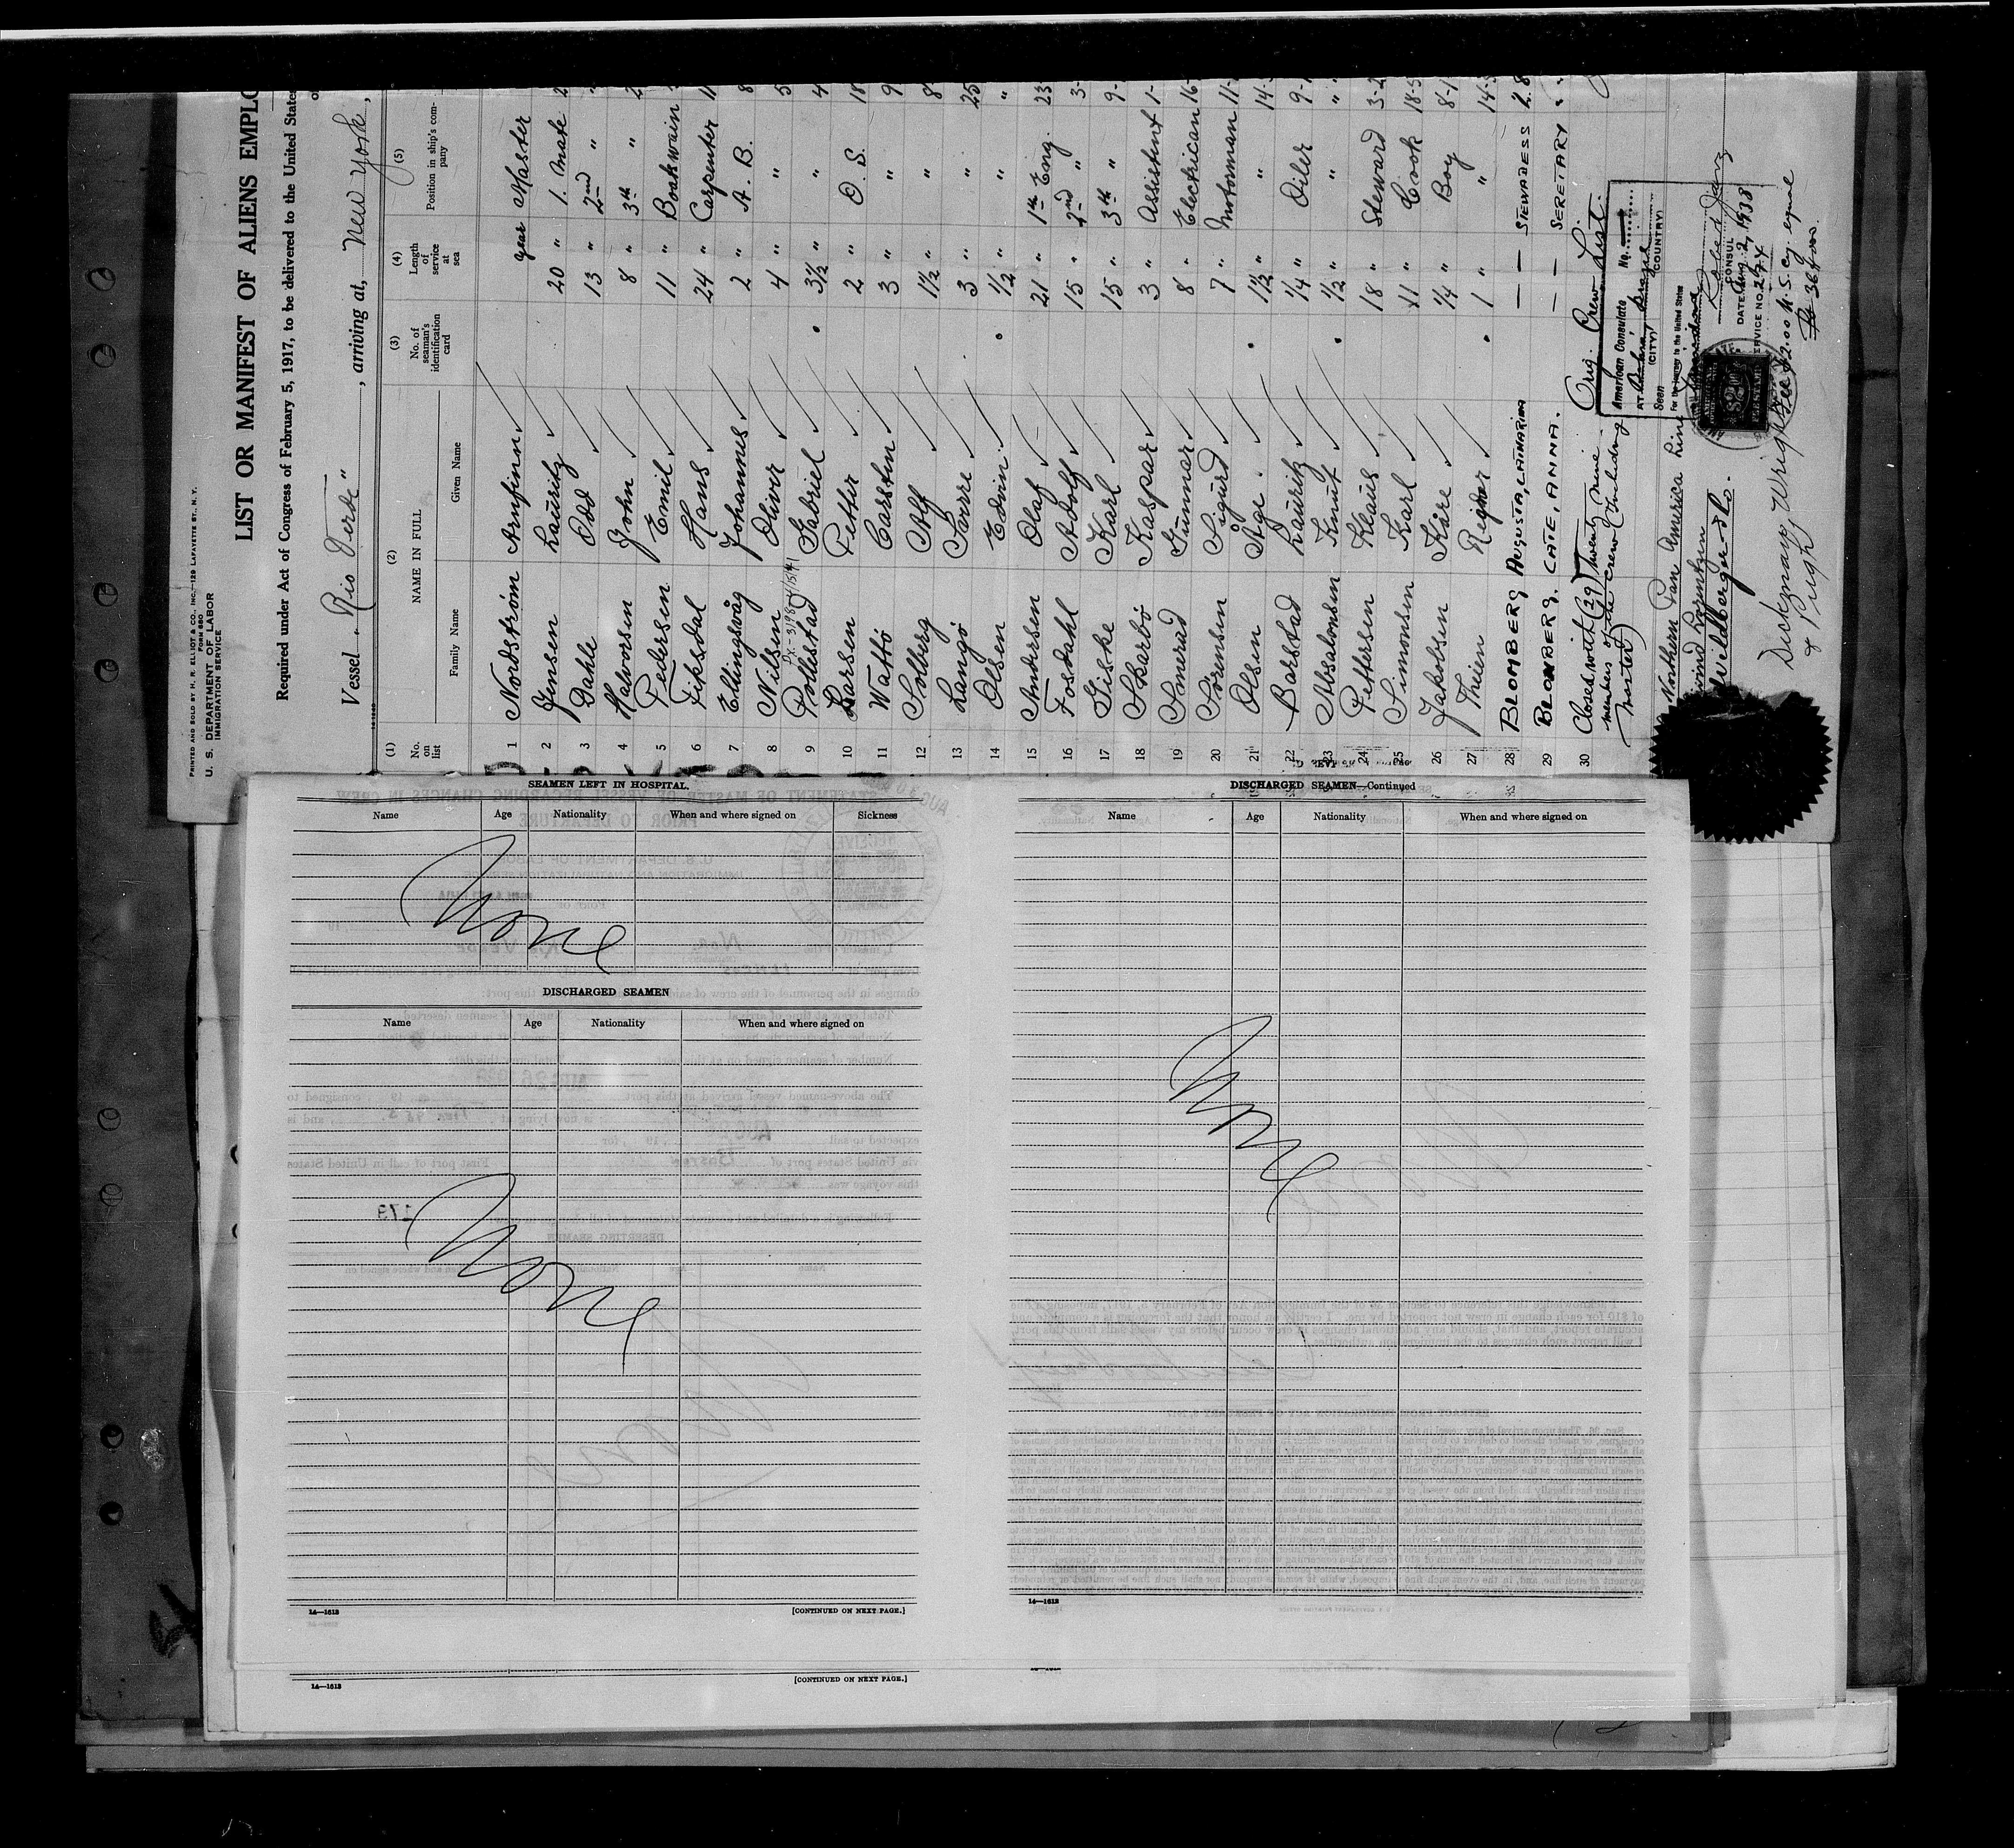 PRINTED AND SOLD BY H. R. ELLIOT & CO., INC.—129 LAFAYETTE ST., N.Y.
FORM 680
U. S. DEPARTMENT OF LABOR
IMMIGRATION SERVICE
LIST OR MANIFEST OF ALIENS EMPLO
Required under Act of Congress of February 5, 1917, to be delivered to the United States
Vessel "Rio Verde", arriving at, New York,
(1) (2) (3) (4) (5)
No. on list NAME IN FULL No. of seaman's identification card Length of service at sea Position in ship's company
Family Name Given Name
1 Nordstrøm Arnfinn year Master
2 Jensen Lauritz 20 " 1. Mate
3 Dahle Odd 13 " 2nd "
4 Halvorsen John 8 " 3th "
5 Pedersen Emil 11 " Boatswain
6 Fiksdal Hans 24 " Carpenter
7 Ellingsvåg Johannes 2 " A. B.
8 Nilsen Oliver 4 " "
9 Pollestad Gabriel 3½ " "
10 Larsen Petter 2 " O. S.
11 Wattö Carsten 3 " "
12 Solberg Alf 1½ " "
13 Langö Sverre 3 " "
14 Olsen Edvin 1/2 " "
15 Andersen Olaf 21 " 1th Eng.
16 Fosdahl Adolf 15 " 2nd "
17 Giske Karl 15 " 3th "
18 Skarbö Kaspar 3 " Assistent
19 Somerad Gunnar 8 " Electrician
20 Sörensen Sigurd 7 " Motorman
21 Olsen Åge 1½ " "
22 Barstad Lauritz 1/4 " Oiler
23 Absalonsen Knut 1/2 " "
24 Pettersen Klaus 18 " Steward
25 Simonsen Karl 11 " Cook
26 Jakobsen Kåre 1/4 " Boy
27 Thien Reidar 1 " "
28 BLOMBERG AUGUSTA, CATHARINA — — STEWARDESS
29 BLOMBERG, CATE, ANNA. — — SERETTARY
30 Closes with (29) twenty nine
members of the crew (including
master)
Orig. Crew List.
American Consulate No.
AT Bahia, Brazil
(CITY) (COUNTRY)
Seen
For the journey to the United States
CONSUL
DATE Aug. 2, 1938
SERVICE NO. 274
Fee $2.00 U. S. Cy. equal
Northern Pan America Line
Wildberger & Co.
SEAMEN LEFT IN HOSPITAL.
Name Age Nationality When and where signed on Sickness
None
DISCHARGED SEAMEN
Name Age Nationality When and where signed on
None
14—1613 [CONTINUED ON NEXT PAGE.]
14—1613 [CONTINUED ON NEXT PAGE.]
DISCHARGED SEAMEN—Continued
Name Age Nationality When and where signed on
None
14—1613